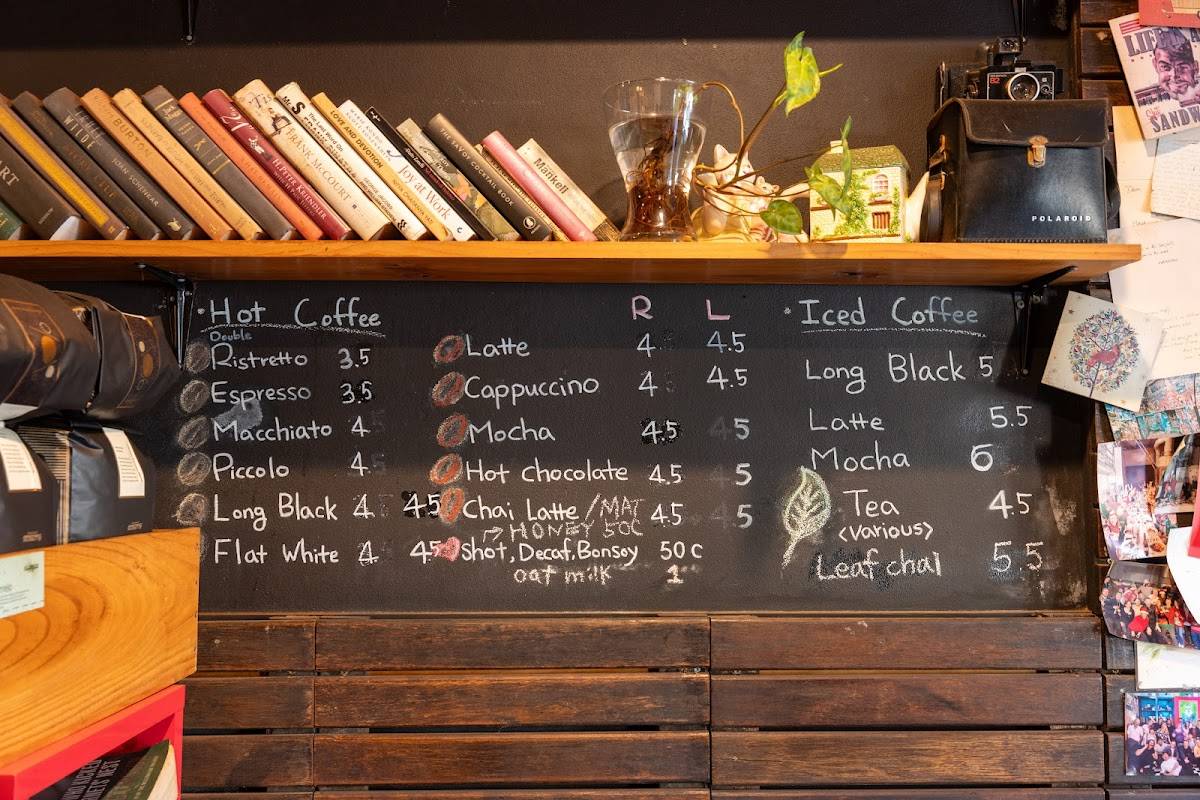 HART
WILDE
BURTON
JOHN SCHEHAR
FRANK McCOURT
JUPITER KRIENDLER
"21"
'Tis
LOVE AND DEVOTION
Joy at Work
Mankell
LIFE
SANDW
82
POLAROID
• Hot Coffee
Double
Ristretto 3.5
Espresso 3.5
Macchiato 4
Piccolo 4
Long Black 4 4.5
Flat White 4 4.5
R L
Latte 4 4.5
Cappuccino 4 4.5
Mocha 4.5 5
Hot Chocolate 4.5 5
Chai Latte / MAT 4.5 5
→ HONEY 50C
Shot, Decaf, Bonsoy 50 C
oat milk 1
• Iced Coffee
Long Black 5
Latte 5.5
Mocha 6
Tea 4.5
<Various>
Leaf chai 5.5